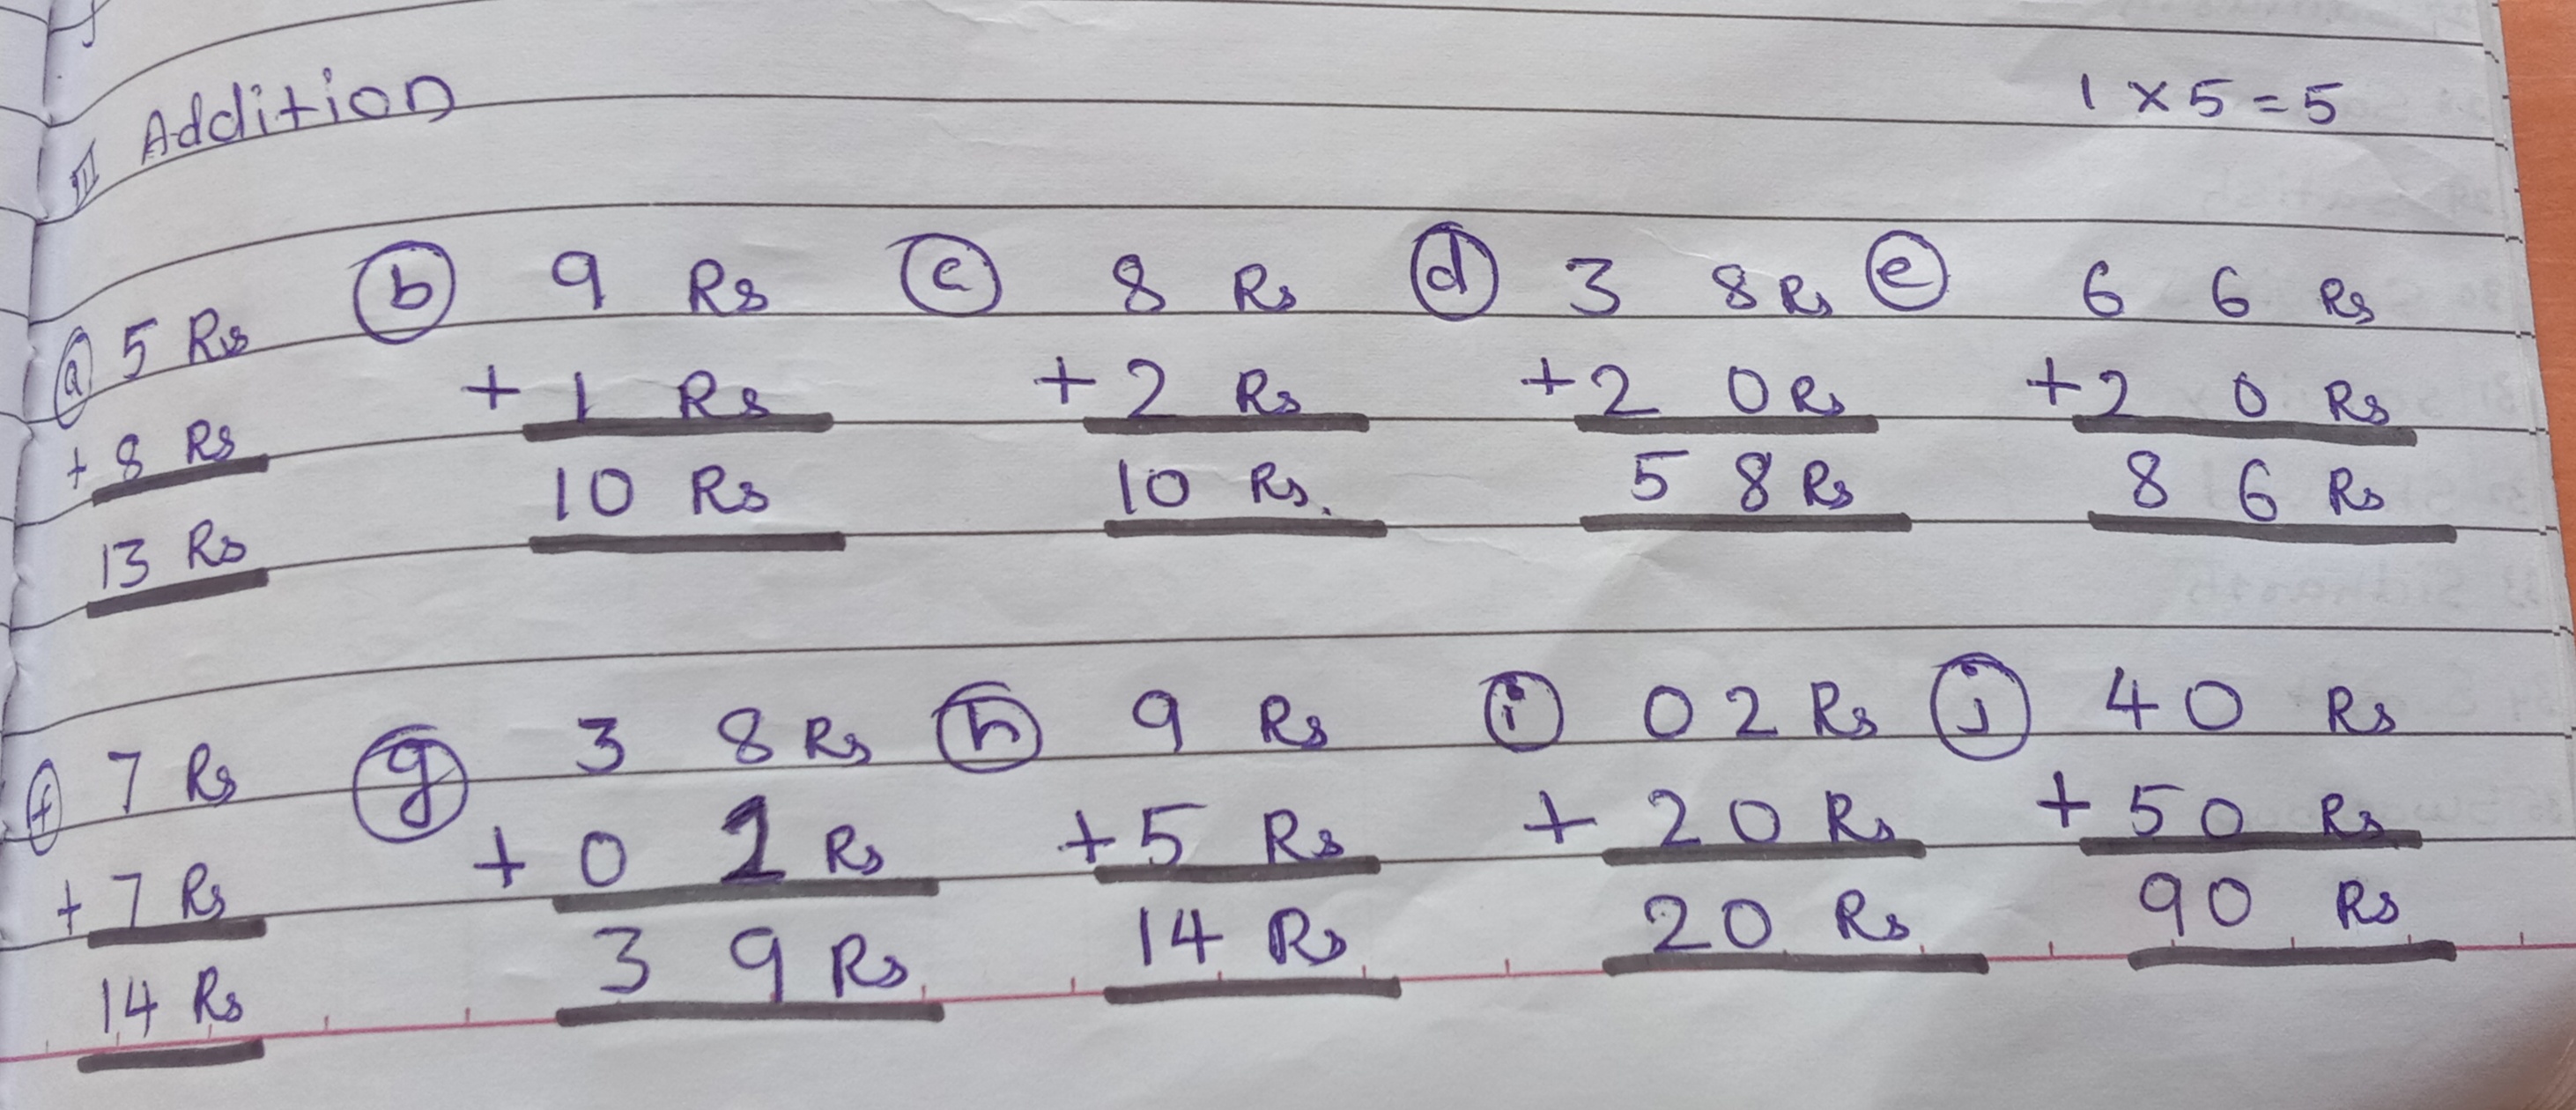 II Addition 1 × 5 = 5
(a) 5 Rs (b) 9 Rs (c) 8 Rs (d) 3 8 Rs (e) 6 6 Rs
+ 8 Rs + 1 Rs + 2 Rs + 2 0 Rs + 2 0 Rs
13 Rs 10 Rs 10 Rs. 5 8 Rs 8 6 Rs
(f) 7 Rs (g) 3 8 Rs (h) 9 Rs (i) 0 2 Rs (j) 4 0 Rs
+ 7 Rs + 0 1 Rs + 5 Rs + 2 0 Rs + 5 0 Rs
14 Rs 3 9 Rs 14 Rs 2 0 Rs 9 0 Rs